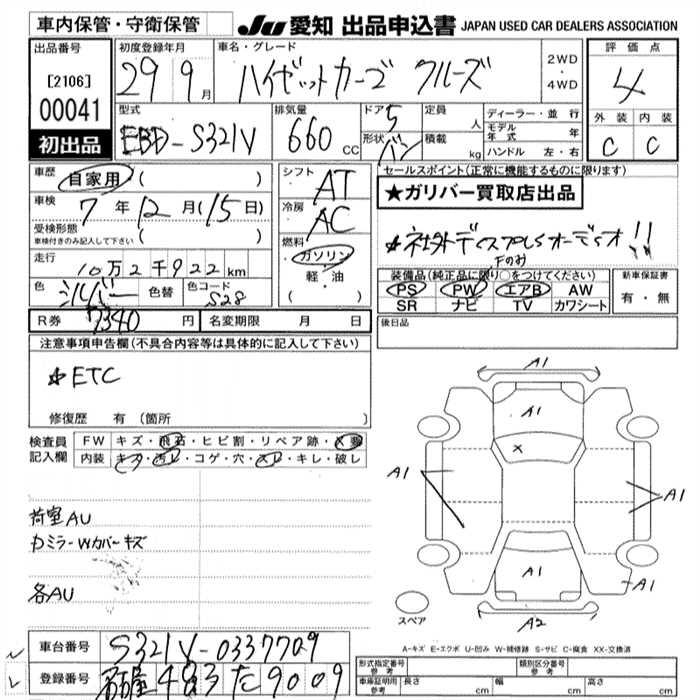 車内保管・守衛保管
JU 愛知 出品申込書 JAPAN USED CAR DEALERS ASSOCIATION
出品番号
[2106]
00041
初出品
初度登録年月
29 9月
車名・グレード
ハイゼットカーゴ クルーズ
2WD
・
4WD
評価点
4
外装 内装
C C
型式
EBD-S321V
排気量
660 CC
ドア 5
形状 バン
定員 人
積載 kg
ディーラー・並行
モデル年式 年
ハンドル 左・右
車歴 自家用 ( )
車検 7年12月(15日)
受検形態
車検付きのみ記入して下さい ( )
走行 10万2千922km
色 シルバー 色替 色コード S28
シフト AT
冷房 AC
燃料
ガソリン
軽・油
セールスポイント(正常に機能するものに限ります)
★ガリバー買取店出品
☆社外ディスプレイオーディオ!!
装備品(純正品に限り○をつけてください)
PS PW エアB AW
SR ナビ TV カワシート
新車保証書
有・無
R券 7340 円 名変期限 月 日
後日品
注意事項申告欄(不具合内容等は具体的に記入して下さい)
☆ETC
修復歴 有 (箇所 )
検査員記入欄
FW キズ・飛石・ヒビ割・リペア跡・X要
内装 キズ・汚レ・コゲ・穴・スレ・キレ・破レ
荷室AU
カミラーWカバーキズ
各AU
A1
A1
X
A1
A1
A1
A1
A2
スペア
A-キズ E-エクボ U-凹み W-補修跡 S-サビ C-腐食 XX-交換済
車台番号 S321V-0337709
登録番号 名古屋 483 た 9009
形式指定番号 参考
類別区分番号 参考
車庫証明用 参考 長さ cm 幅 cm 高さ cm